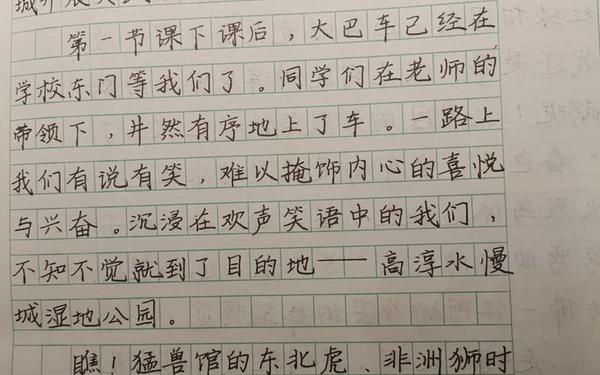 第一节课下课后，大巴车已经在
学校东门等我们了。同学们在老师的
带领下，井然有序地上了车。一路上
我们有说有笑，难以掩饰内心的喜悦
与兴奋。沉浸在欢声笑语中的我们，
不知不觉就到了目的地——高淳水慢
城湿地公园。
瞧！猛兽馆的东北虎、非洲狮时